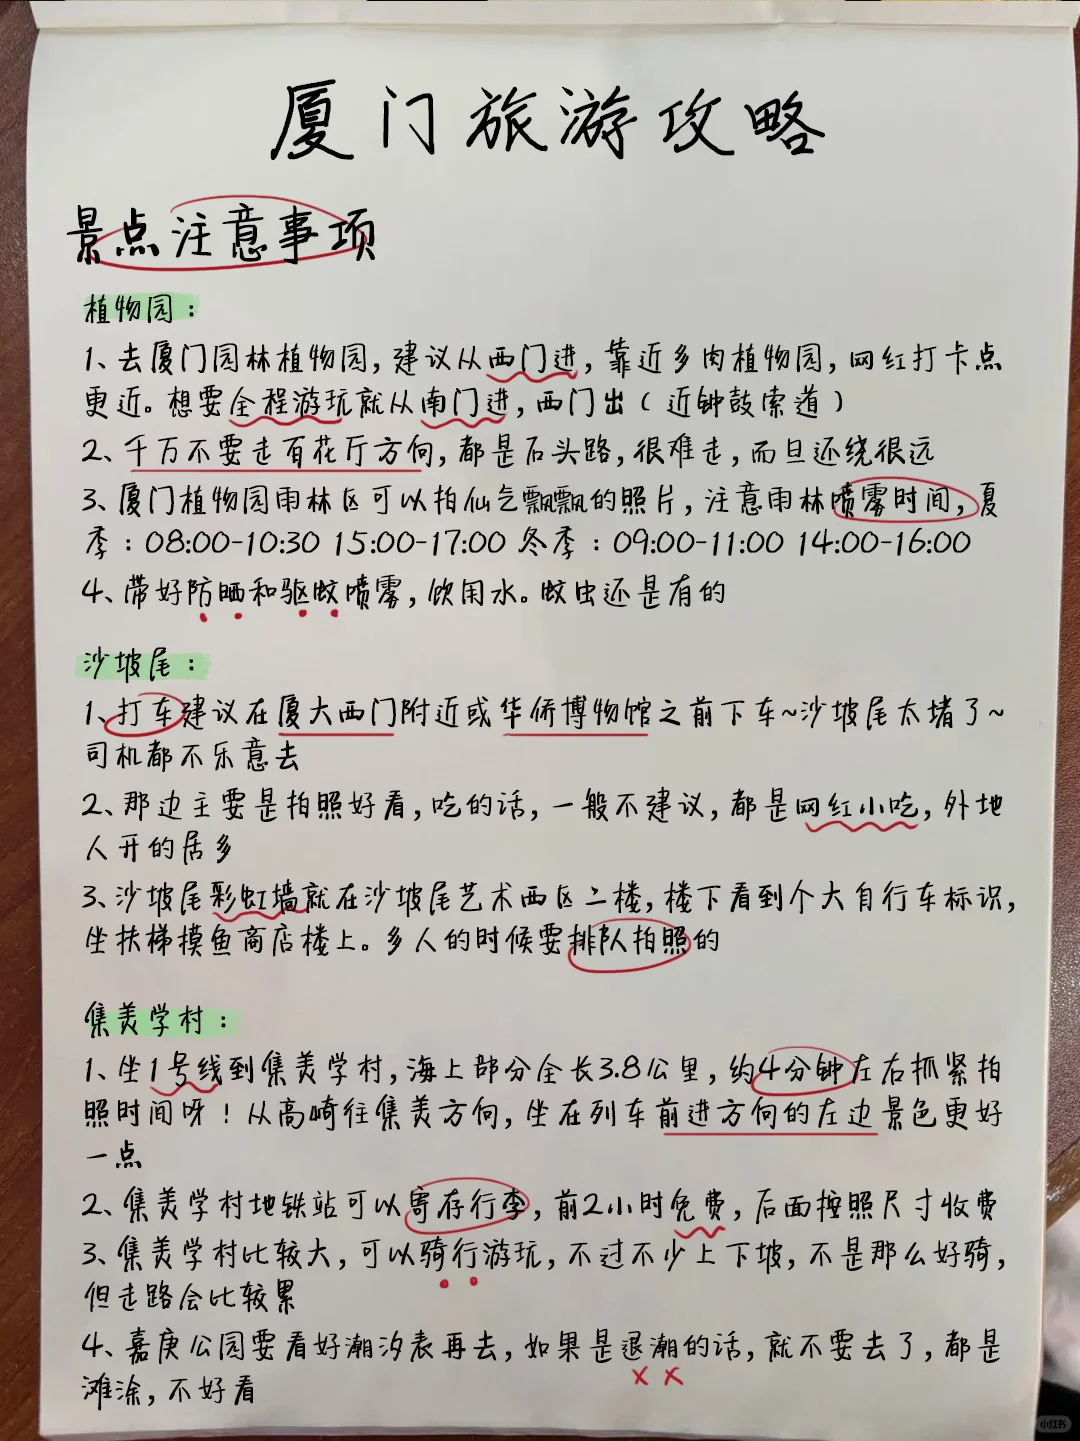 厦门旅游攻略
景点注意事项
植物园：
1、去厦门园林植物园，建议从西门进，靠近多肉植物园，网红打卡点
更近。想要全程游玩就从南门进，西门出（近钟鼓索道）
2、千万不要走百花厅方向，都是石头路，很难走，而且还绕很远
3、厦门植物园雨林区可以拍仙气飘飘的照片，注意雨林喷雾时间，夏
季：08:00-10:30 15:00-17:00 冬季：09:00-11:00 14:00-16:00
4、带好防晒和驱蚊喷雾，饮用水。蚊虫还是有的
沙坡尾：
1、打车建议在厦大西门附近或华侨博物馆之前下车~沙坡尾太堵了~
司机都不乐意去
2、那边主要是拍照好看，吃的话，一般不建议，都是网红小吃，外地
人开的居多
3、沙坡尾彩虹墙就在沙坡尾艺术西区二楼，楼下看到个大自行车标识，
坐扶梯摸鱼商店楼上。多人的时候要排队拍照的
集美学村：
1、坐1号线到集美学村，海上部分全长3.8公里，约4分钟左右抓紧拍
照时间呀！从高崎往集美方向，坐在列车前进方向的左边景色更好
一点
2、集美学村地铁站可以寄存行李，前2小时免费，后面按照尺寸收费
3、集美学村比较大，可以骑行游玩，不过不少上下坡，不是那么好骑，
但走路会比较累
4、嘉庚公园要看好潮汐表再去，如果是退潮的话，就不要去了，都是
滩涂，不好看
小红书